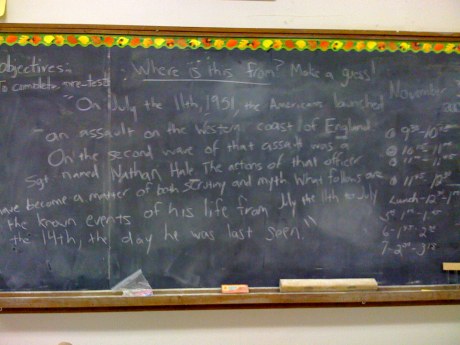 Objectives:
To complete pre-tests
Where is this from? Make a guess!
"On July the 11th, 1951, the Americans launched
an assault on the western coast of England
On the second wave of that assault was a
Sgt. named Nathan Hale The actions of that officer
have become a matter of both scrutiny and myth What follows are
the known events of his life from July the 11th to July
the 14th, the day he was last seen."
November
Lunch